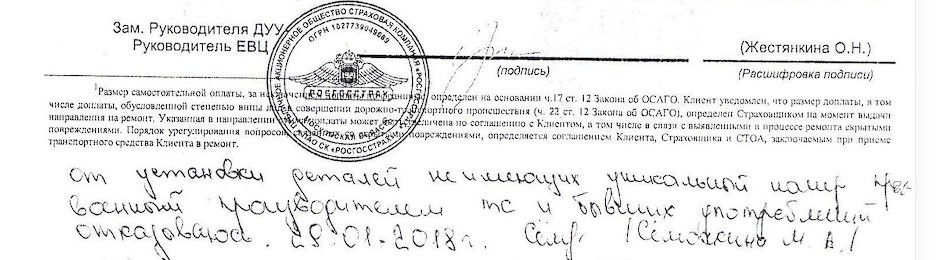 Зам. Руководителя ДУУ
Руководитель ЕВЦ
(Жестянкина О.Н.)
(подпись)
(Расшифровка подписи)
АКЦИОНЕРНОЕ ОБЩЕСТВО СТРАХОВАЯ КОМПАНИЯ «РОСГОССТРАХ»
ОГРН 1027739049689
РОСГОССТРАХ
МОСКОВСКАЯ ОБЛАСТЬ
ПАО СК «РОСГОССТРАХ»
¹Размер самостоятельной оплаты, за определен на основании ч.17 ст. 12 Закона об ОСАГО. Клиент уведомлен, что размер доплаты, в том
числе доплаты, обусловленной степенью вины в совершении дорожно-транспортного происшествия (ч. 22 ст. 12 Закона об ОСАГО), определен Страховщиком на момент выдачи
направления на ремонт. Указанная в направлении доплаты может по соглашению с Клиентом, а том числе в связи с выявленными в процессе ремонта скрытыми
повреждениями. Порядок урегулирования вопросов, повреждениями, определяется соглашением Клиента, Страховщика и СТОА, заключаемым при приеме
транспортного средства Клиента в ремонт.
от установки деталей не имеющих уникальный номер
производителем тс и бывших употреблений
отказываюсь. 29.01.2018г. /Семожкина М.А./